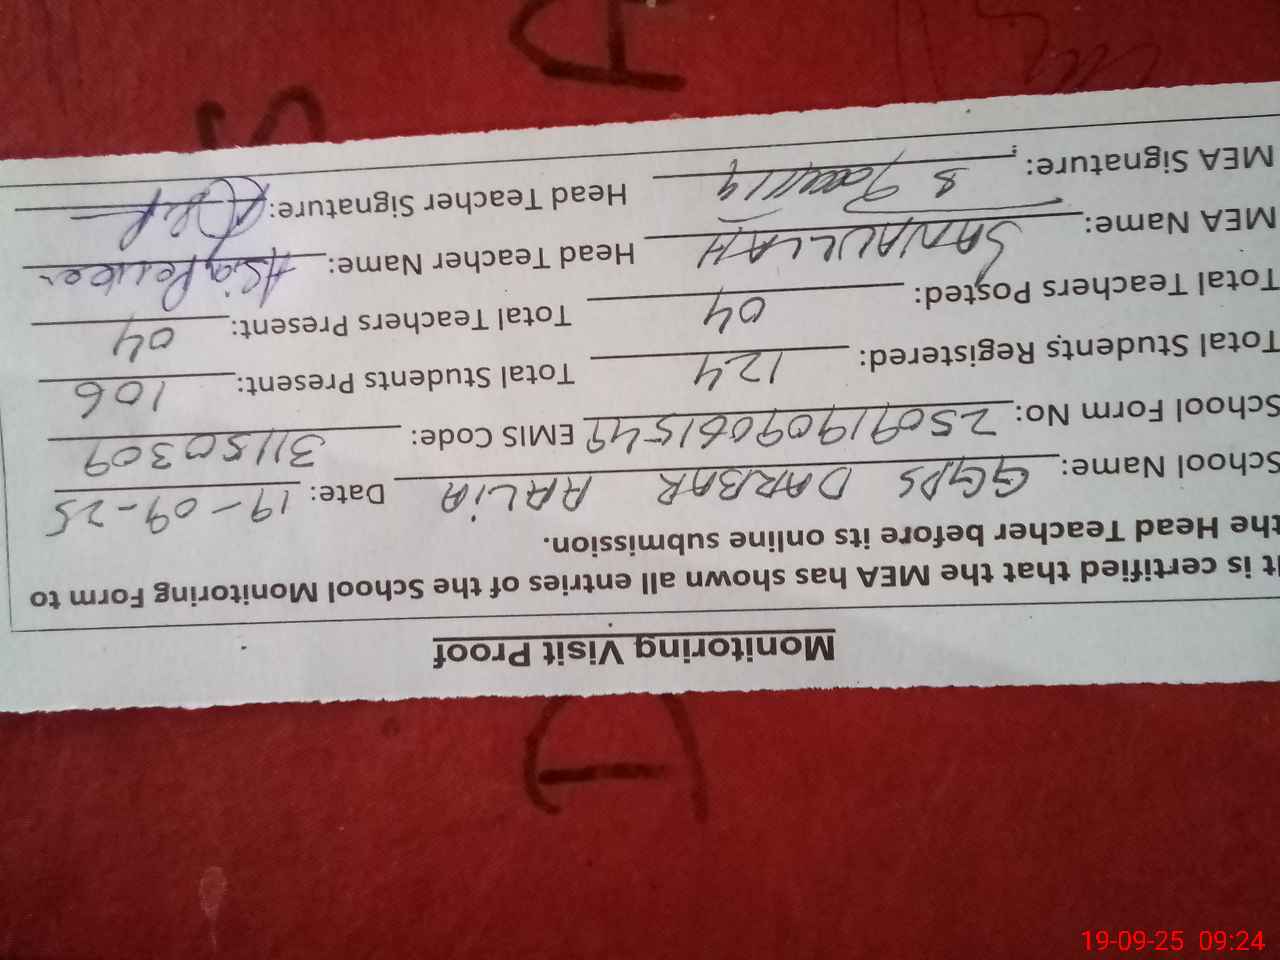 Monitoring Visit Proof
It is certified that the MEA has shown all entries of the School Monitoring Form to
the Head Teacher before its online submission.
School Name: GGPS DARBAR AALiA Date: 19-09-25
School Form No: 25091909061549 EMIS Code: 31150309
Total Students Registered: 124 Total Students Present: 106
Total Teachers Posted: 04 Total Teachers Present: 04
MEA Name: SANAULLAH Head Teacher Name: Asia Perveen
MEA Signature: Head Teacher Signature:
19-09-25 09:24